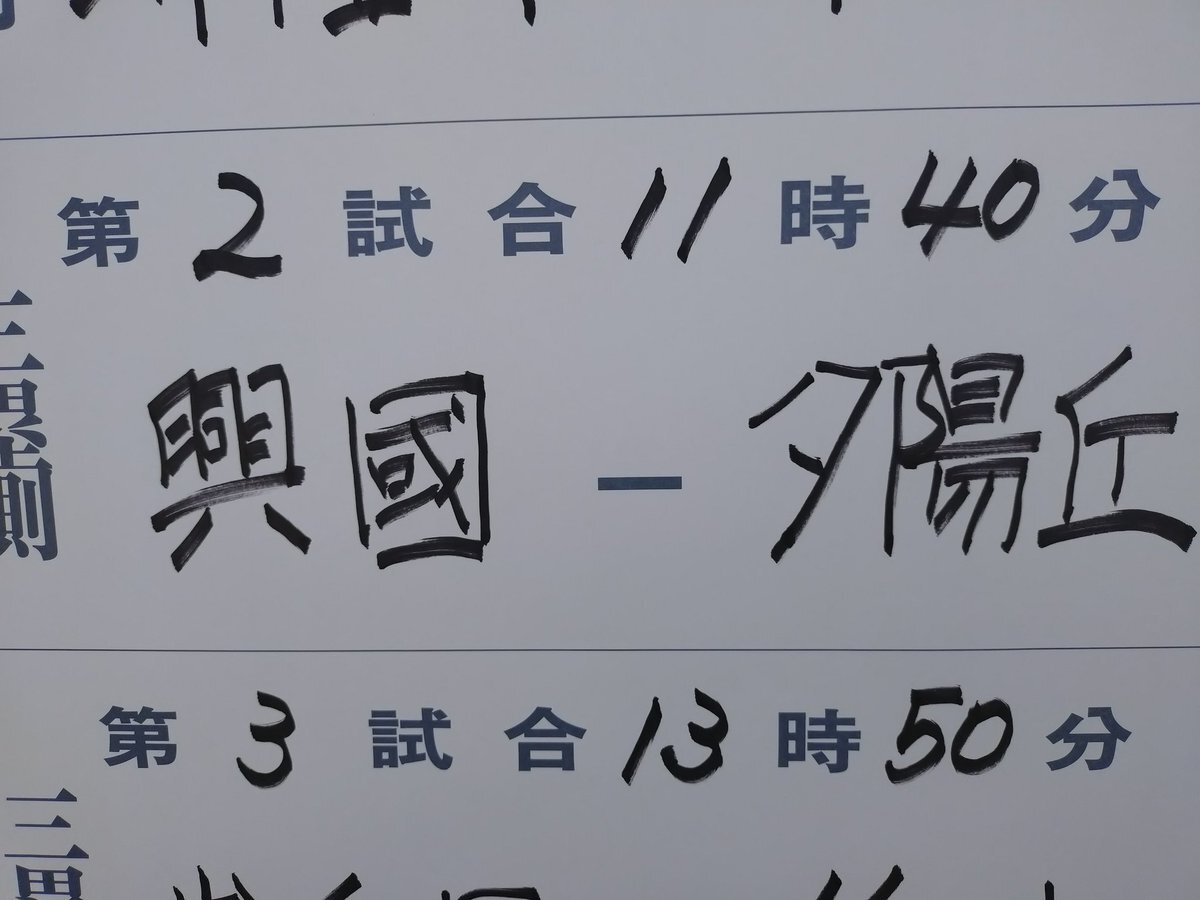 第2試合11時40分
三塁側
興國ー夕陽丘
第3試合13時50分
三